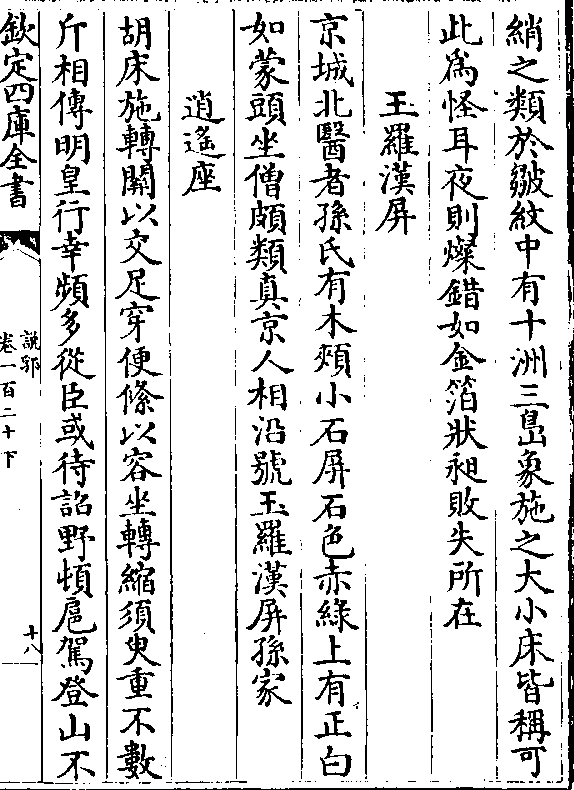 綃之類於皺紋中有十洲三島象施之大小床皆稱可
此為怪耳夜則燦錯如金箔狀昶敗失所在
玉羅漢屏
京城北醫者孫氏有木頰小石屏石色赤綠上有正白
如蒙頭坐僧頗類真京人相沿號玉羅漢屏孫家
逍遙座
胡床施轉關以交足穿便絛以容坐轉縮須臾重不數
斤相傳明皇行幸頻多從臣或待詔野頓扈駕登山不
欽定四庫全書
說郛
卷一百二十下
十八